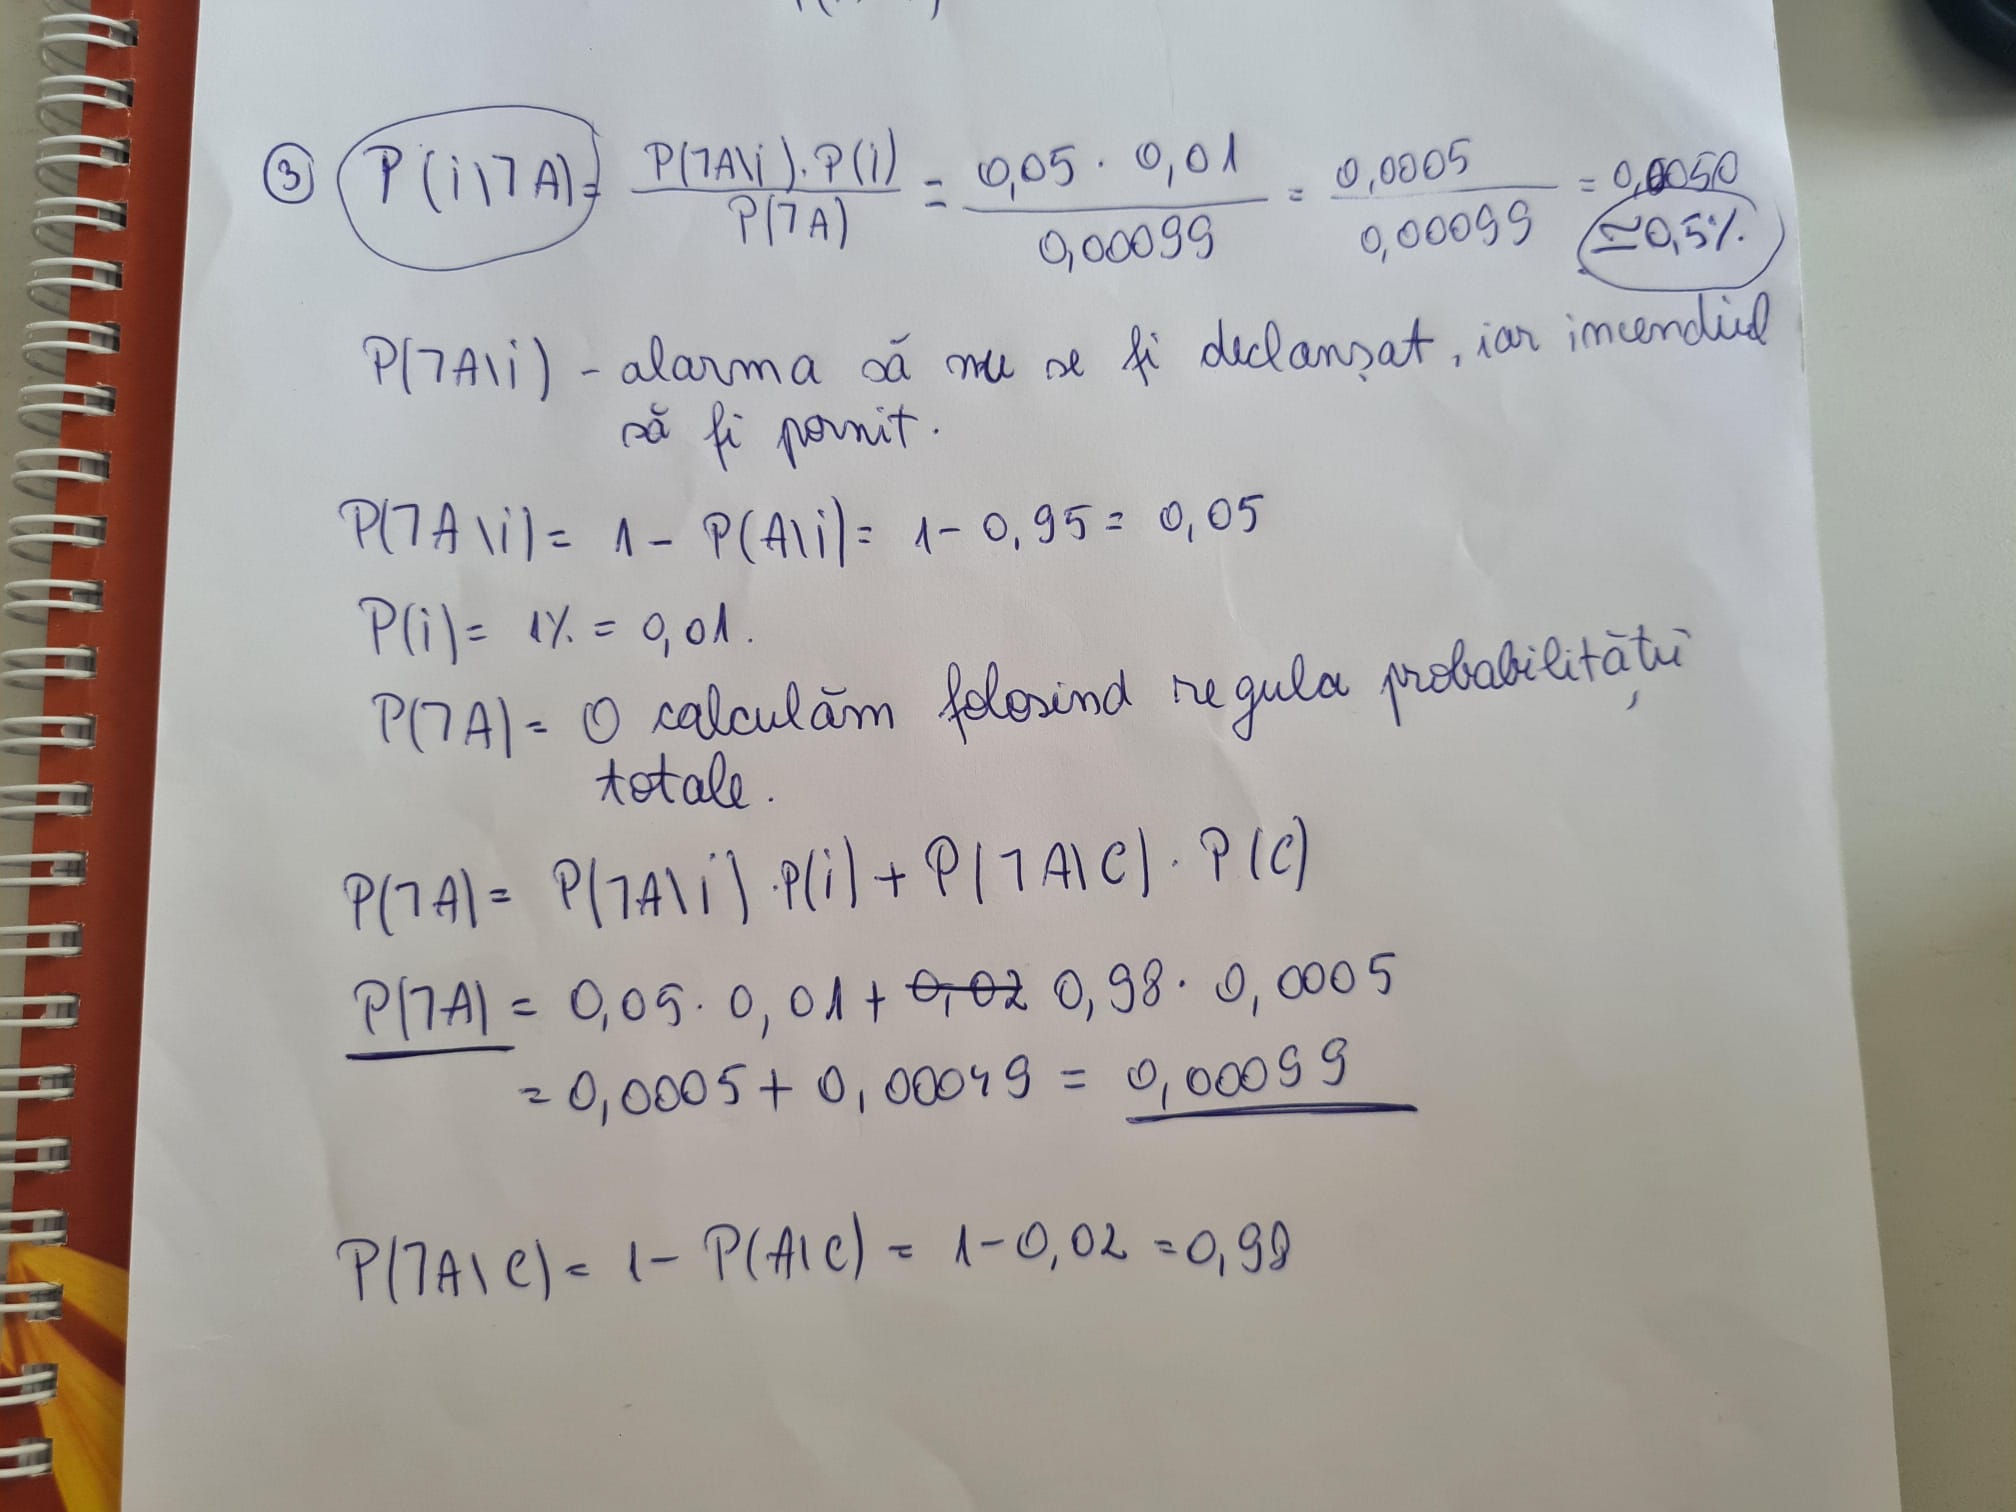 ③ P(i\7A) = P(7A\i).P(i) / P(7A) = 0,05 · 0,01 / 0,00099 = 0,0005 / 0,00099 = 0,0050
≃0,5%.
P(7A\i) - alarma să nu se fi declanșat, iar incendiul
să fi pornit.
P(7A\i) = 1 - P(A\i) = 1 - 0,95 = 0,05
P(i) = 1% = 0,01.
P(7A) = O calculăm folosind regula probabilității
totale.
P(7A) = P(7A\i) · P(i) + P(7A\C) · P(C)
P(7A) = 0,05 · 0,01 + 0,02 0,98 · 0,0005
= 0,0005 + 0,00049 = 0,00099
P(7A\C) = 1 - P(A\C) = 1 - 0,02 = 0,98